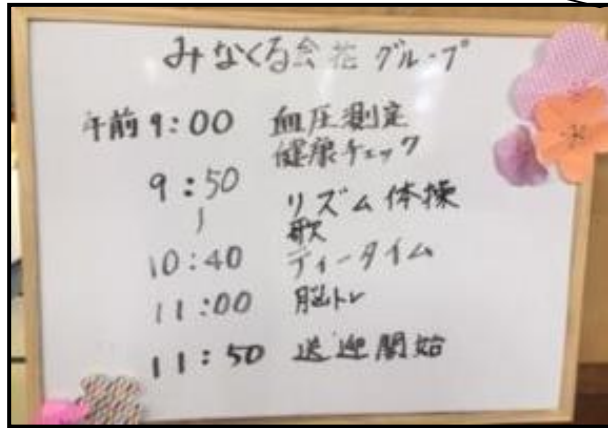 みなくる会 花 グループ
午前 9:00 血圧測定
健康チェック
9:50
〜 リズム体操
歌
10:40 ティータイム
11:00 脳トレ
11:50 送迎開始